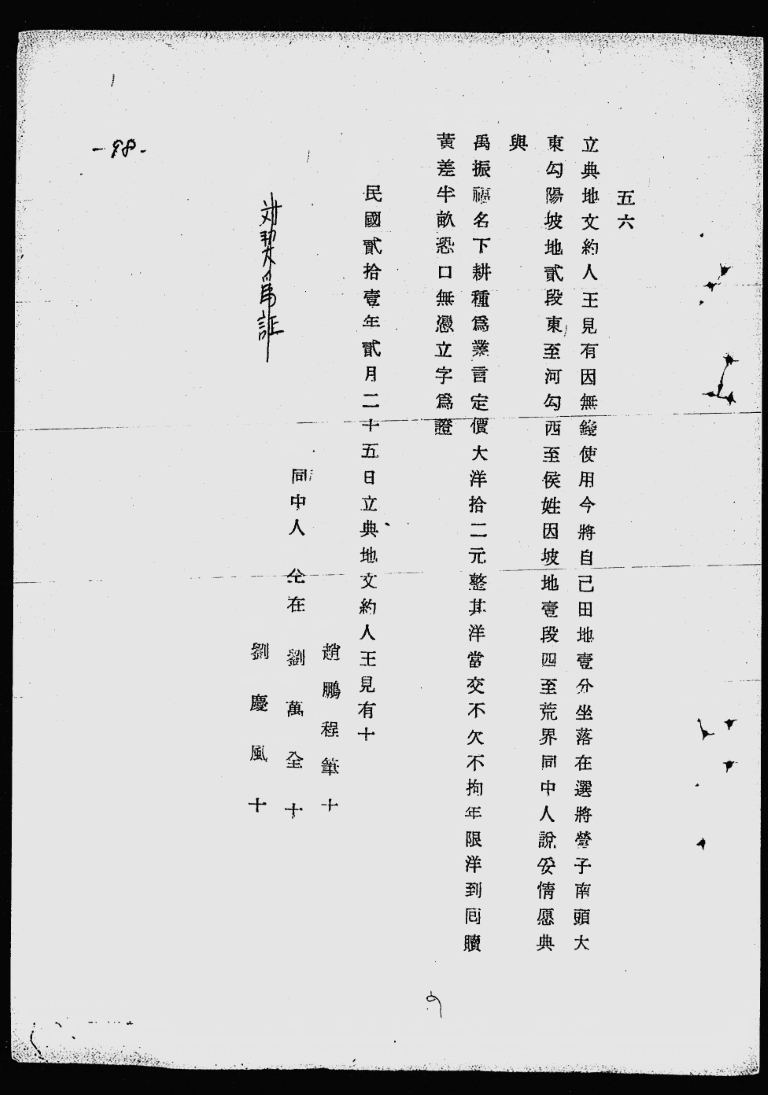 五六
立典地文約人王見有因無錢使用今將自己田地壹分坐落在選將營子南頭大
東勾陽坡地貳段東至河勾西至侯姓因坡地壹段四至荒界同中人說妥情愿典
與
禹振福名下耕種爲業言定價大洋拾二元整其洋當交不欠不拘年限洋到囘贖
黃差半畝恐口無憑立字爲證
民國貳拾壹年貳月二十五日立典地文約人王見有十
趙鵬程筆十
同中人 仝在 劉萬全十
劉慶風十
对契爲証
-98-